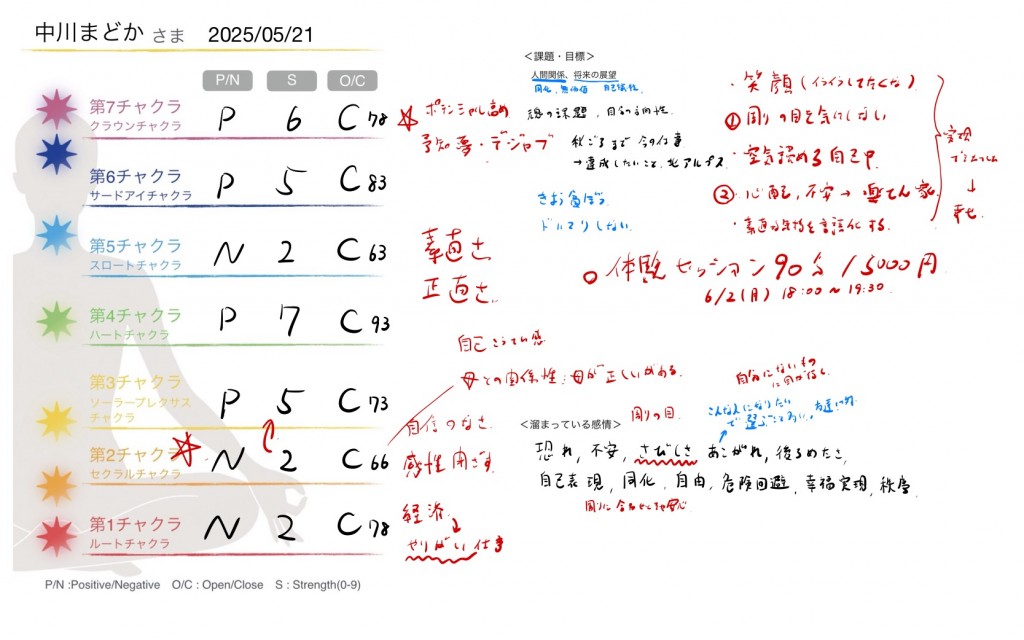 中川まどか さま 2025/05/21
P/N S O/C
第7チャクラ
クラウンチャクラ
P 6 C 78
第6チャクラ
サードアイチャクラ
P 5 C 83
第5チャクラ
スロートチャクラ
N 2 C 63
第4チャクラ
ハートチャクラ
P 7 C 93
第3チャクラ
ソーラープレクサス
チャクラ
P 5 C 73
第2チャクラ
セクラルチャクラ
N 2 C 66
第1チャクラ
ルートチャクラ
N 2 C 78
P/N :Positive/Negative O/C : Open/Close S : Strength(0-9)
ポテンシャル高め
予知夢・デジャブ
素直さ
正直さ
自己こうてい感
母との関係性:母が正しいがある。
自信のなさ
感性閉ざす
経済
やりがい仕事
<課題・目標>
人間関係、将来の展望
同化、無価値 自己犠牲
魂の課題、自分の方向性
秋ごろまで 今の仕事
→達成したいこと、北アルプス
ドハマりしない
・笑顔(イライラしてたくない)
① 周りの目を気にしない
・空気読める自己中
② 心配、不安→楽てん家
・素直な気持を言語化する
実現
↓
幸せ
○ 体験セッション90分 15000円
6/2(月) 18:00~19:30
自分にないもの
こんな人になりたい
周りの目
<溜まっている感情>
恐れ, 不安, さびしさ あこがれ, 後ろめたさ,
自己表現, 同化, 自由, 危険回避, 幸福実現, 秩序